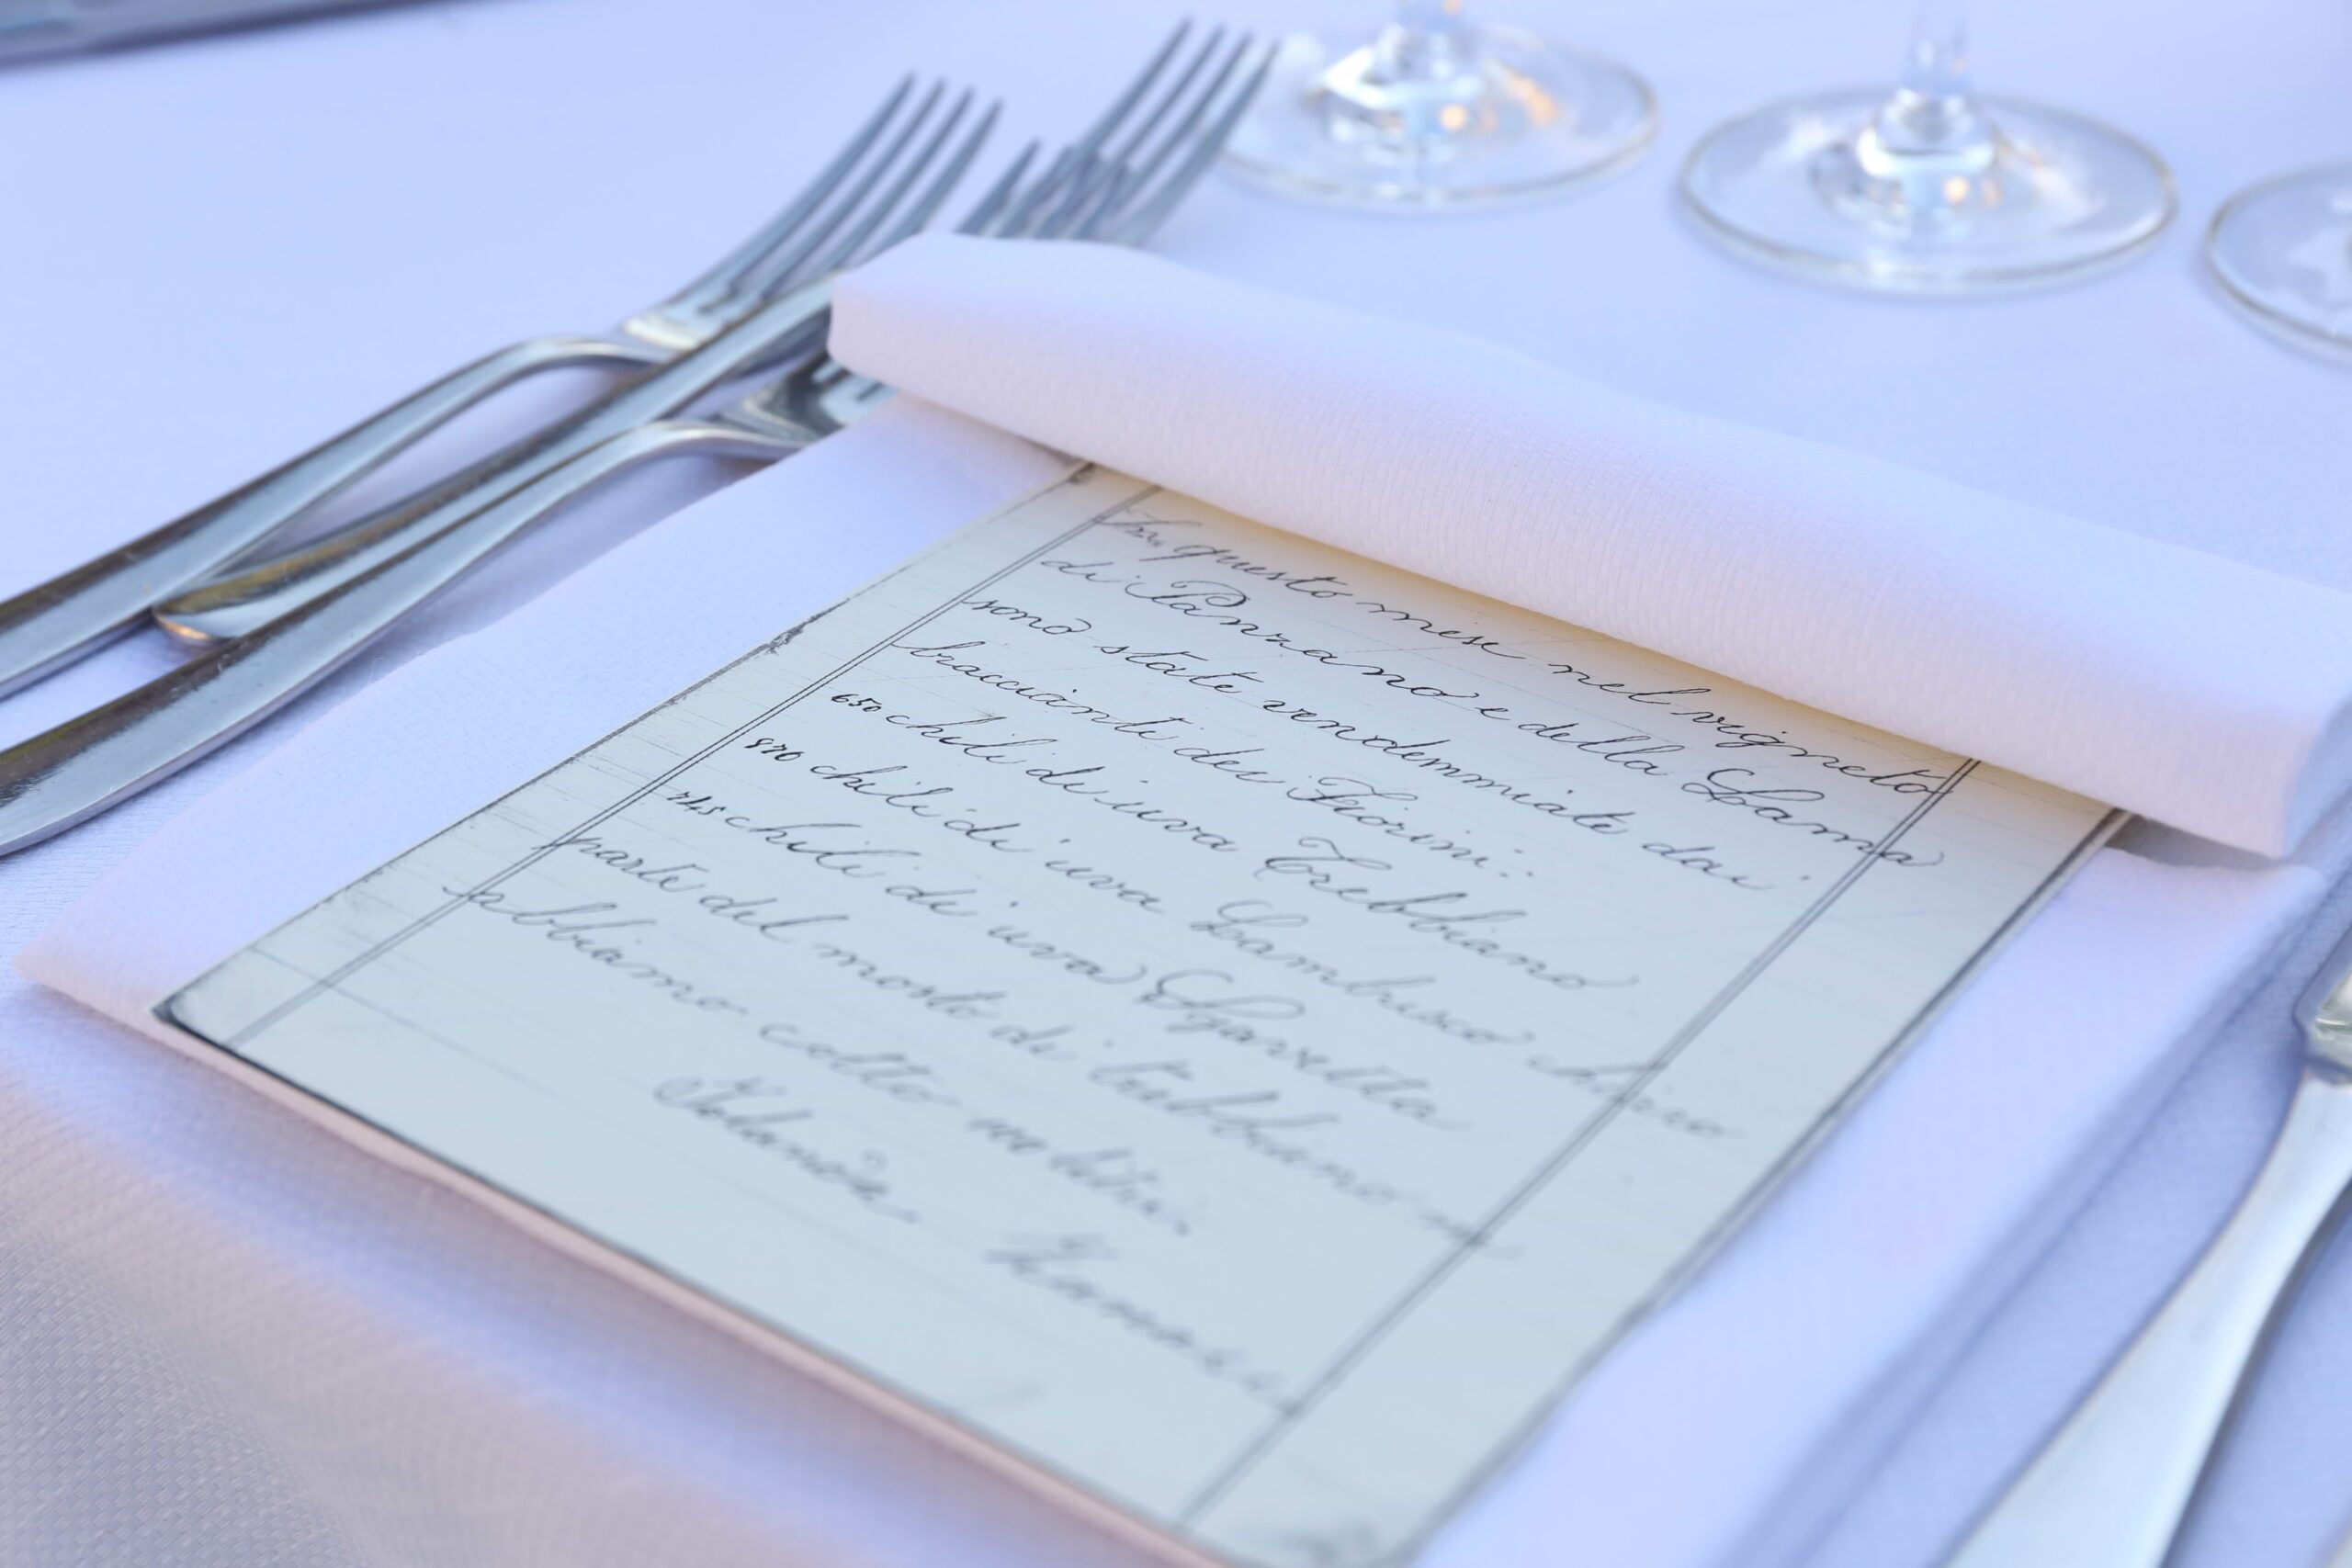 In questo mese nel vigneto
di Panzano e della Lama
sono state vendemmiate dai
braccianti dei Fiorini:
650 chili di uva Trebbiano
870 chili di uva Lambrusco
745 chili di uva Sgavetta
parte del mosto di trebbiano
abbiamo cotto 100 litri.